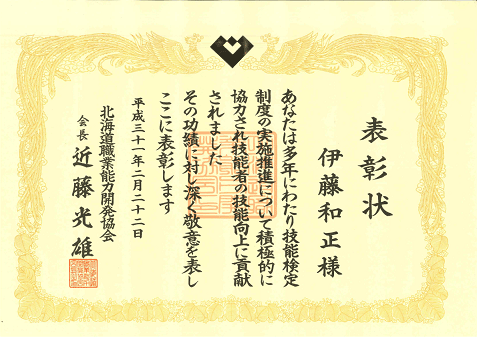 表彰状
伊藤和正様
あなたは多年にわたり技能検定
制度の実施推進について積極的に
協力され技能者の技能向上に貢献
されました
その功績に対し深く敬意を表し
ここに表彰します
平成三十一年二月二十二日
北海道職業能力開発協会
会長 近藤光雄